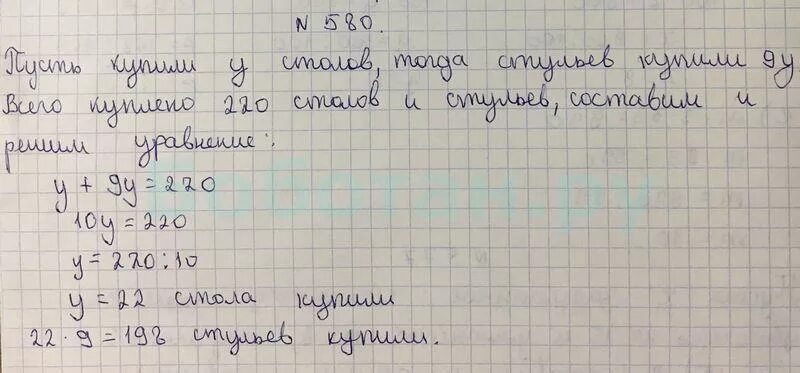 N 580.
Пусть купили y столов, тогда стульев купили 9y
Всего куплено 220 столов и стульев, составим и
решим уравнение:
y + 9y = 220
10y = 220
y = 220 : 10
y = 22 стола купили
22 · 9 = 198 стульев купили.